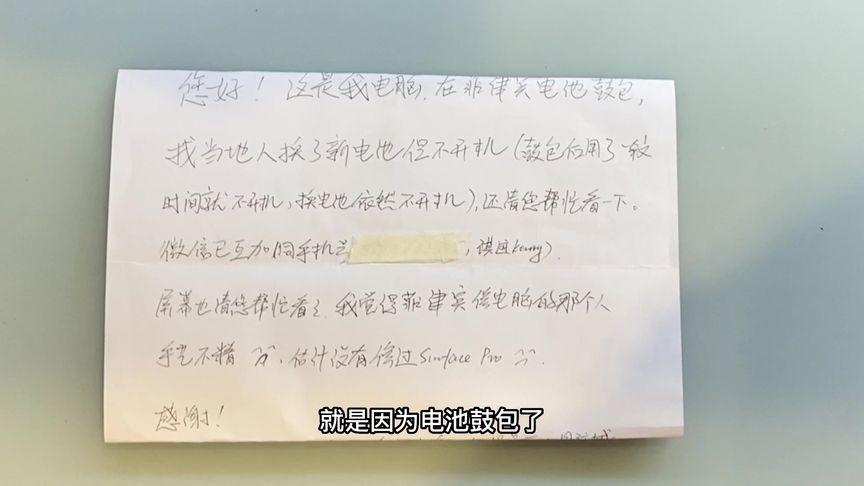 您好！这是我电脑，在菲律宾电池鼓包，
找当地人换了新电池但不开机（鼓包后用了一段
时间就不开机，换电池依然不开机），还请您帮忙看一下。
微信已互加（同手机号
屏幕也请您帮忙看看，我觉得菲律宾修电脑的那个人
手艺不精 ^^，估计没有修过Surface Pro ^^.
感谢！
就是因为电池鼓包了